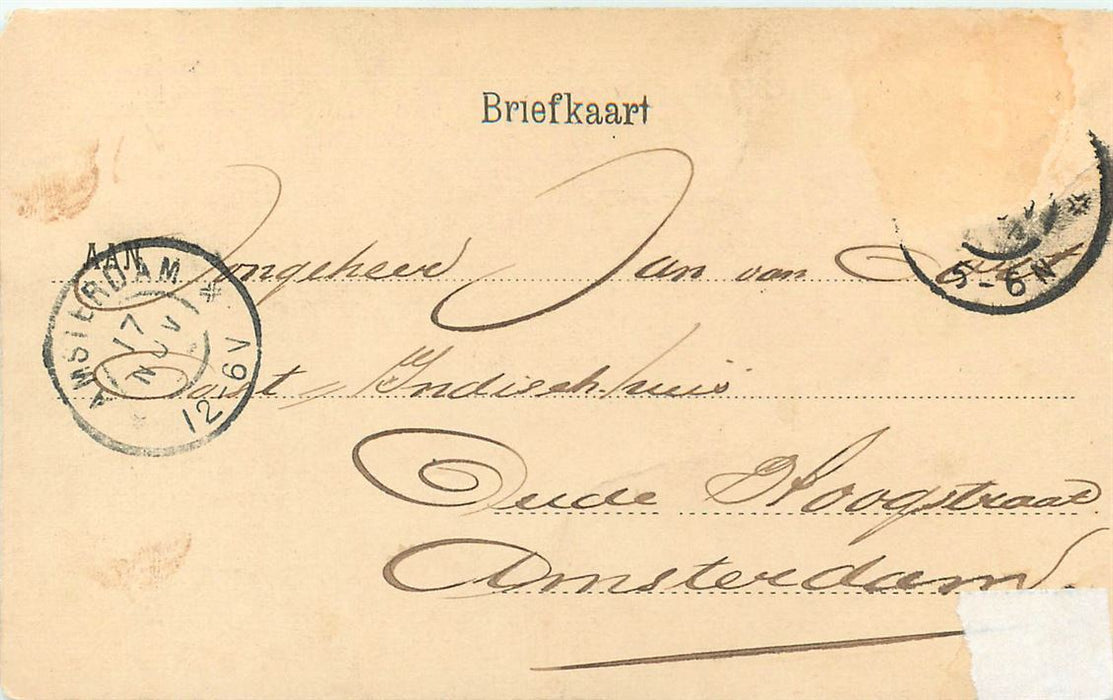 Briefkaart
AAN
Jongeheer Jan van
Oost Indisch huis
Oude Hoogstraat
Amsterdam.
AMSTERDAM
17 NOV
12-6V
5-6N